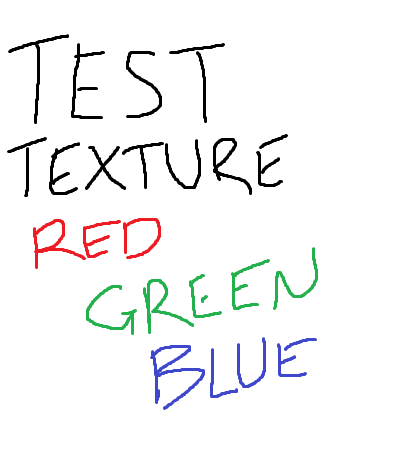 TEST
TEXTURE
RED
GREEN
BLUE